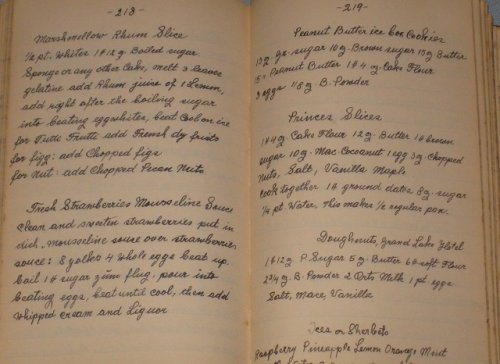 -218-
Marshmellow Rhum Slice
1/2 pt. Whites 1# 12 g Boiled sugar.
Sponge or any other Cake, melt 3 leaves
gelatine add Rhum juice of 1 Lemon,
add right after the boiling sugar
into beating eggwhites, beat Cool on ice
for Tutti Frutti add French dy fruits
for fig: add Chopped figs
for Nut: add Chopped Pecan Nuts
Fresh Strawberries Mousseline Sauce
Clean and sweeten strawberries put in
dish, mousseline souce over strawberries
souce: 8 yolks 4 Whole eggs beat up.
boil 1# sugar zum flug. pour into
beating eggs, beat until cool, then add
whipped Cream and Liquor
-219-
Peanut Butter ice box Cookies
10 g gr. sugar 10 g. Brown sugar 15 g Butter
Peanut Butter 1# 4 g. Cake Flour
3 eggs 1/8 g B. Powder
Princes Slices
1# 4 g Cakes Flour 12 g. Butter 1# brown
sugar 10 g. Mac Cocoanut 1 egg 3 g Chopped
Nuts, Salt, Vanilla Maple
Cook together 1# ground dates 8 g. sugar
1/2 pt. Water, This makes 1/2 regular pan.
Doughnuts, Grand Lake Hotel
1# 12 g P. Sugar 5 g. Butter 6# soft Flour
2 3/4 g. B. Powder 2 Qrts Milk 1 pt eggs
Salt, Mace, Vanilla
Ices or Sherbets
Raspberry Pineapple Lemon Orange Mint